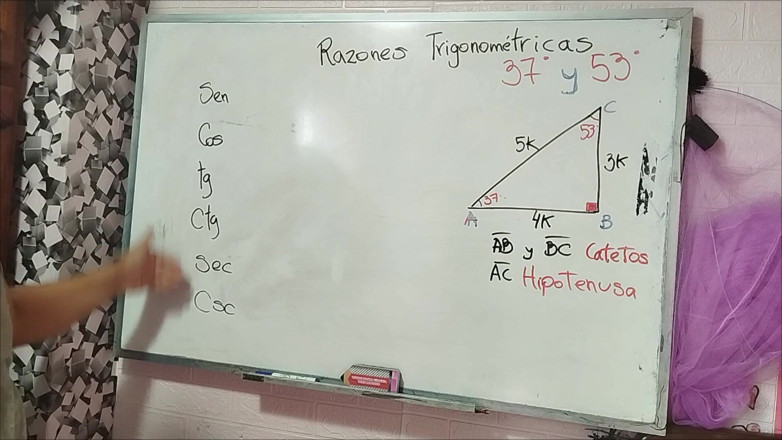 Razones Trigonométricas
37° y 53°
Sen
Cos
tg
Ctg
Sec
Csc
C
53°
5K
3K
37°
A
4K
B
AB y BC Catetos
AC Hipotenusa